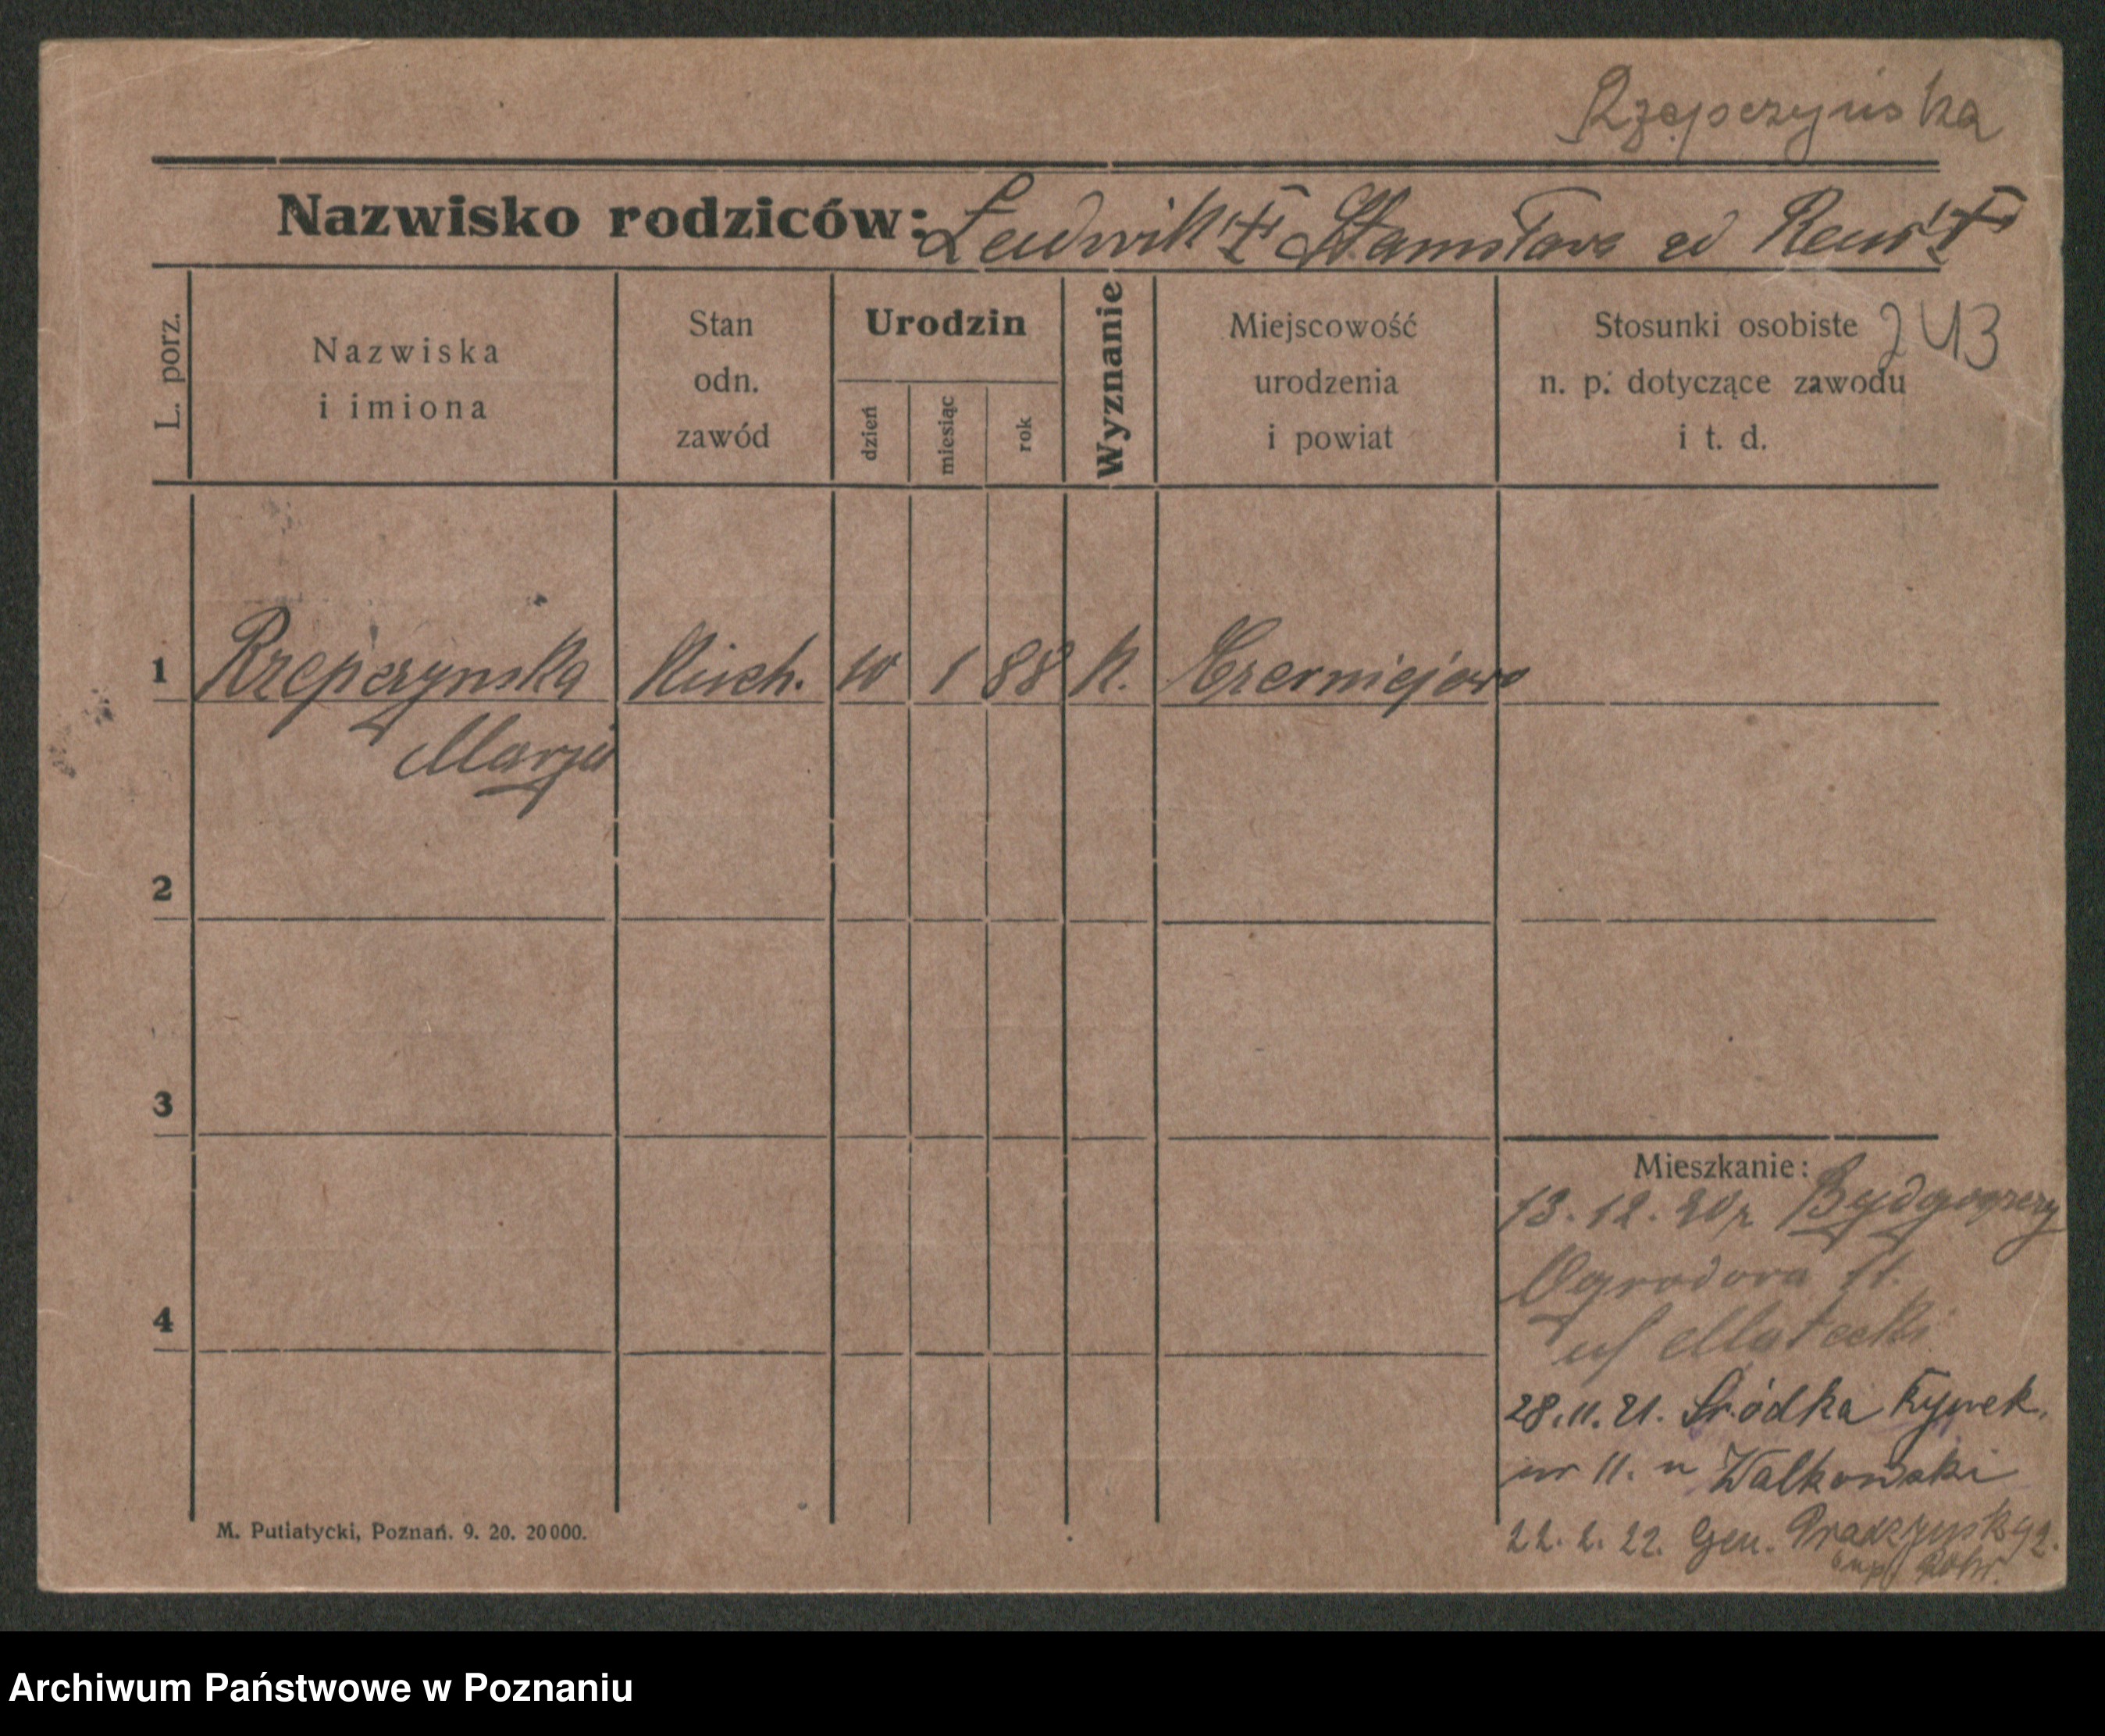 Rzepczyńska
Nazwisko rodziców: Ludwik Stanisława zd
243
L. porz.
Nazwiska
i imiona
Stan
odn.
zawód
Urodzin
dzień
miesiąc
rok
Wyznanie
Miejscowość
urodzenia
i powiat
Stosunki osobiste
n. p. dotyczące zawodu
i t. d.
1 Rzepczynska Kuch. 10 1 88 K. Czerniejewo
Marja
2
3
4
Mieszkanie:
13.12.20 r Bydgoszczy
Ogrodowa 11.
28.11.21. Śródka Rynek.
nr 11. u Walkowski
22.2.22. Gen. Prądzyńsk 92.
M. Putiatycki, Poznań. 9. 20. 20000.
Archiwum Państwowe w Poznaniu